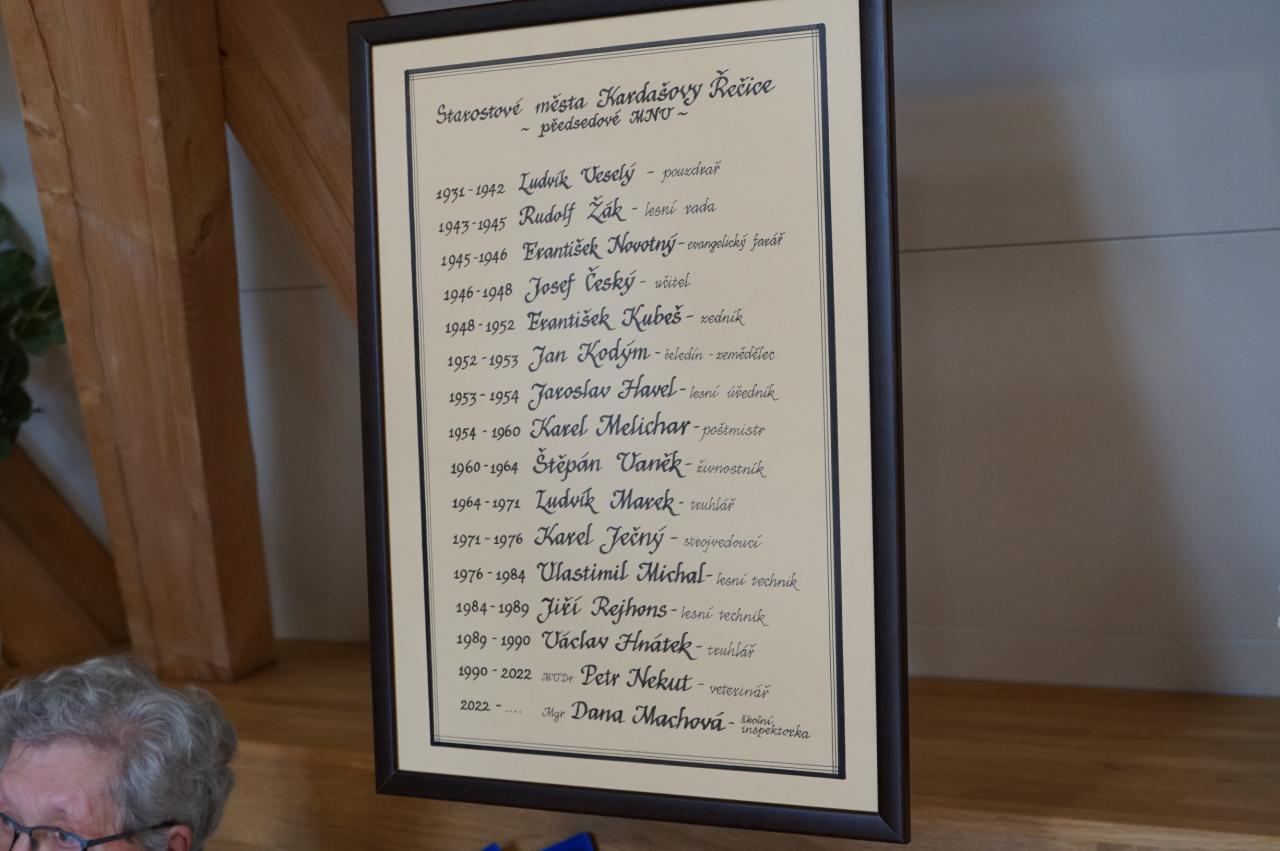 Starostové města Kardašovy Řečice
~ předsedové MNV ~
1931-1942 Ludvík Veselý - pouzdrař
1943-1945 Rudolf Žák - lesní rada
1945-1946 František Novotný - evangelický farář
1946-1948 Josef Český - učitel
1948-1952 František Kubeš - zedník
1952-1953 Jan Kodým - čeledín - zemědělec
1953-1954 Jaroslav Havel - lesní úředník
1954-1960 Karel Melichar - poštmistr
1960-1964 Štěpán Vaněk - živnostník
1964-1971 Ludvík Marek - truhlář
1971-1976 Karel Ječný - strojvedoucí
1976-1984 Vlastimil Michal - lesní technik
1984-1989 Jiří Rejhons - lesní technik
1989-1990 Václav Hnátek - truhlář
1990-2022 MVDr. Petr Nekut - veterinář
2022-.... Mgr. Dana Machová - školní
inspektorka